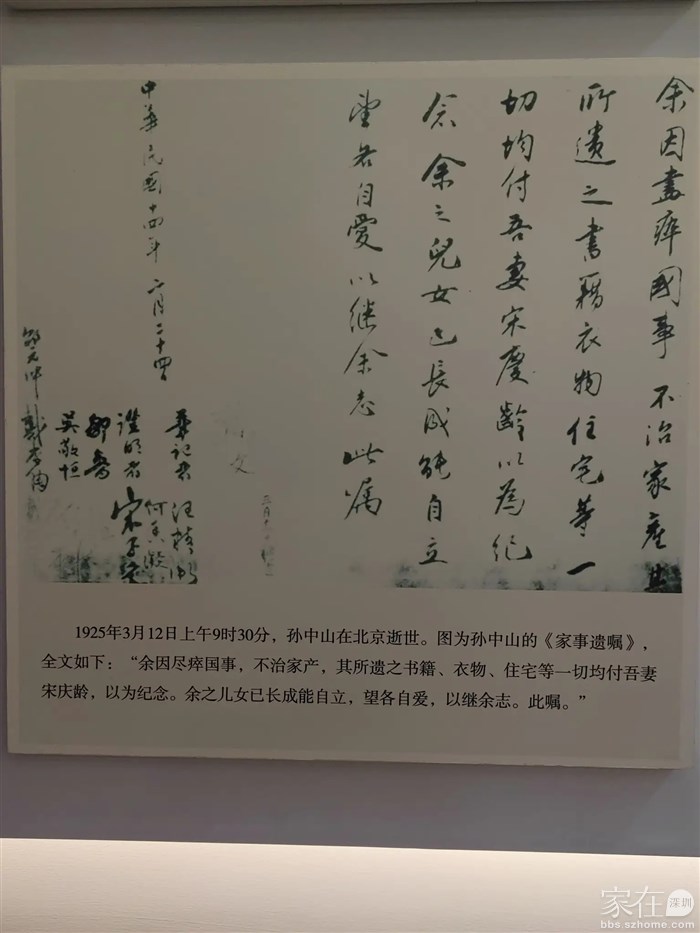 余因盡瘁國事不治家產其
所遺之書籍衣物住宅等一
切均付吾妻宋慶齡以為紀
念余之兒女已長成能自立
望各自愛以继余志此嘱
三月十一日
孫文
中華民國十四年二月二十四日
筆記者 汪精衛
何香凝
證明者 宋子文
鄒魯
吳敬恒
戴季陶
邵元冲
1925年3月12日上午9时30分，孙中山在北京逝世。图为孙中山的《家事遗嘱》，
全文如下：“余因尽瘁国事，不治家产，其所遗之书籍、衣物、住宅等一切均付吾妻
宋庆龄，以为纪念。余之儿女已长成能自立，望各自爱，以继余志。此嘱。”
家在深圳
bbs.szhome.com